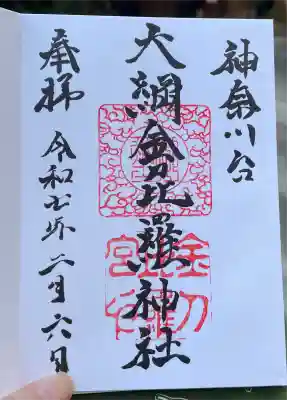 神奈川台
大綱金刀比羅神社
奉拝
令和七年二月六日